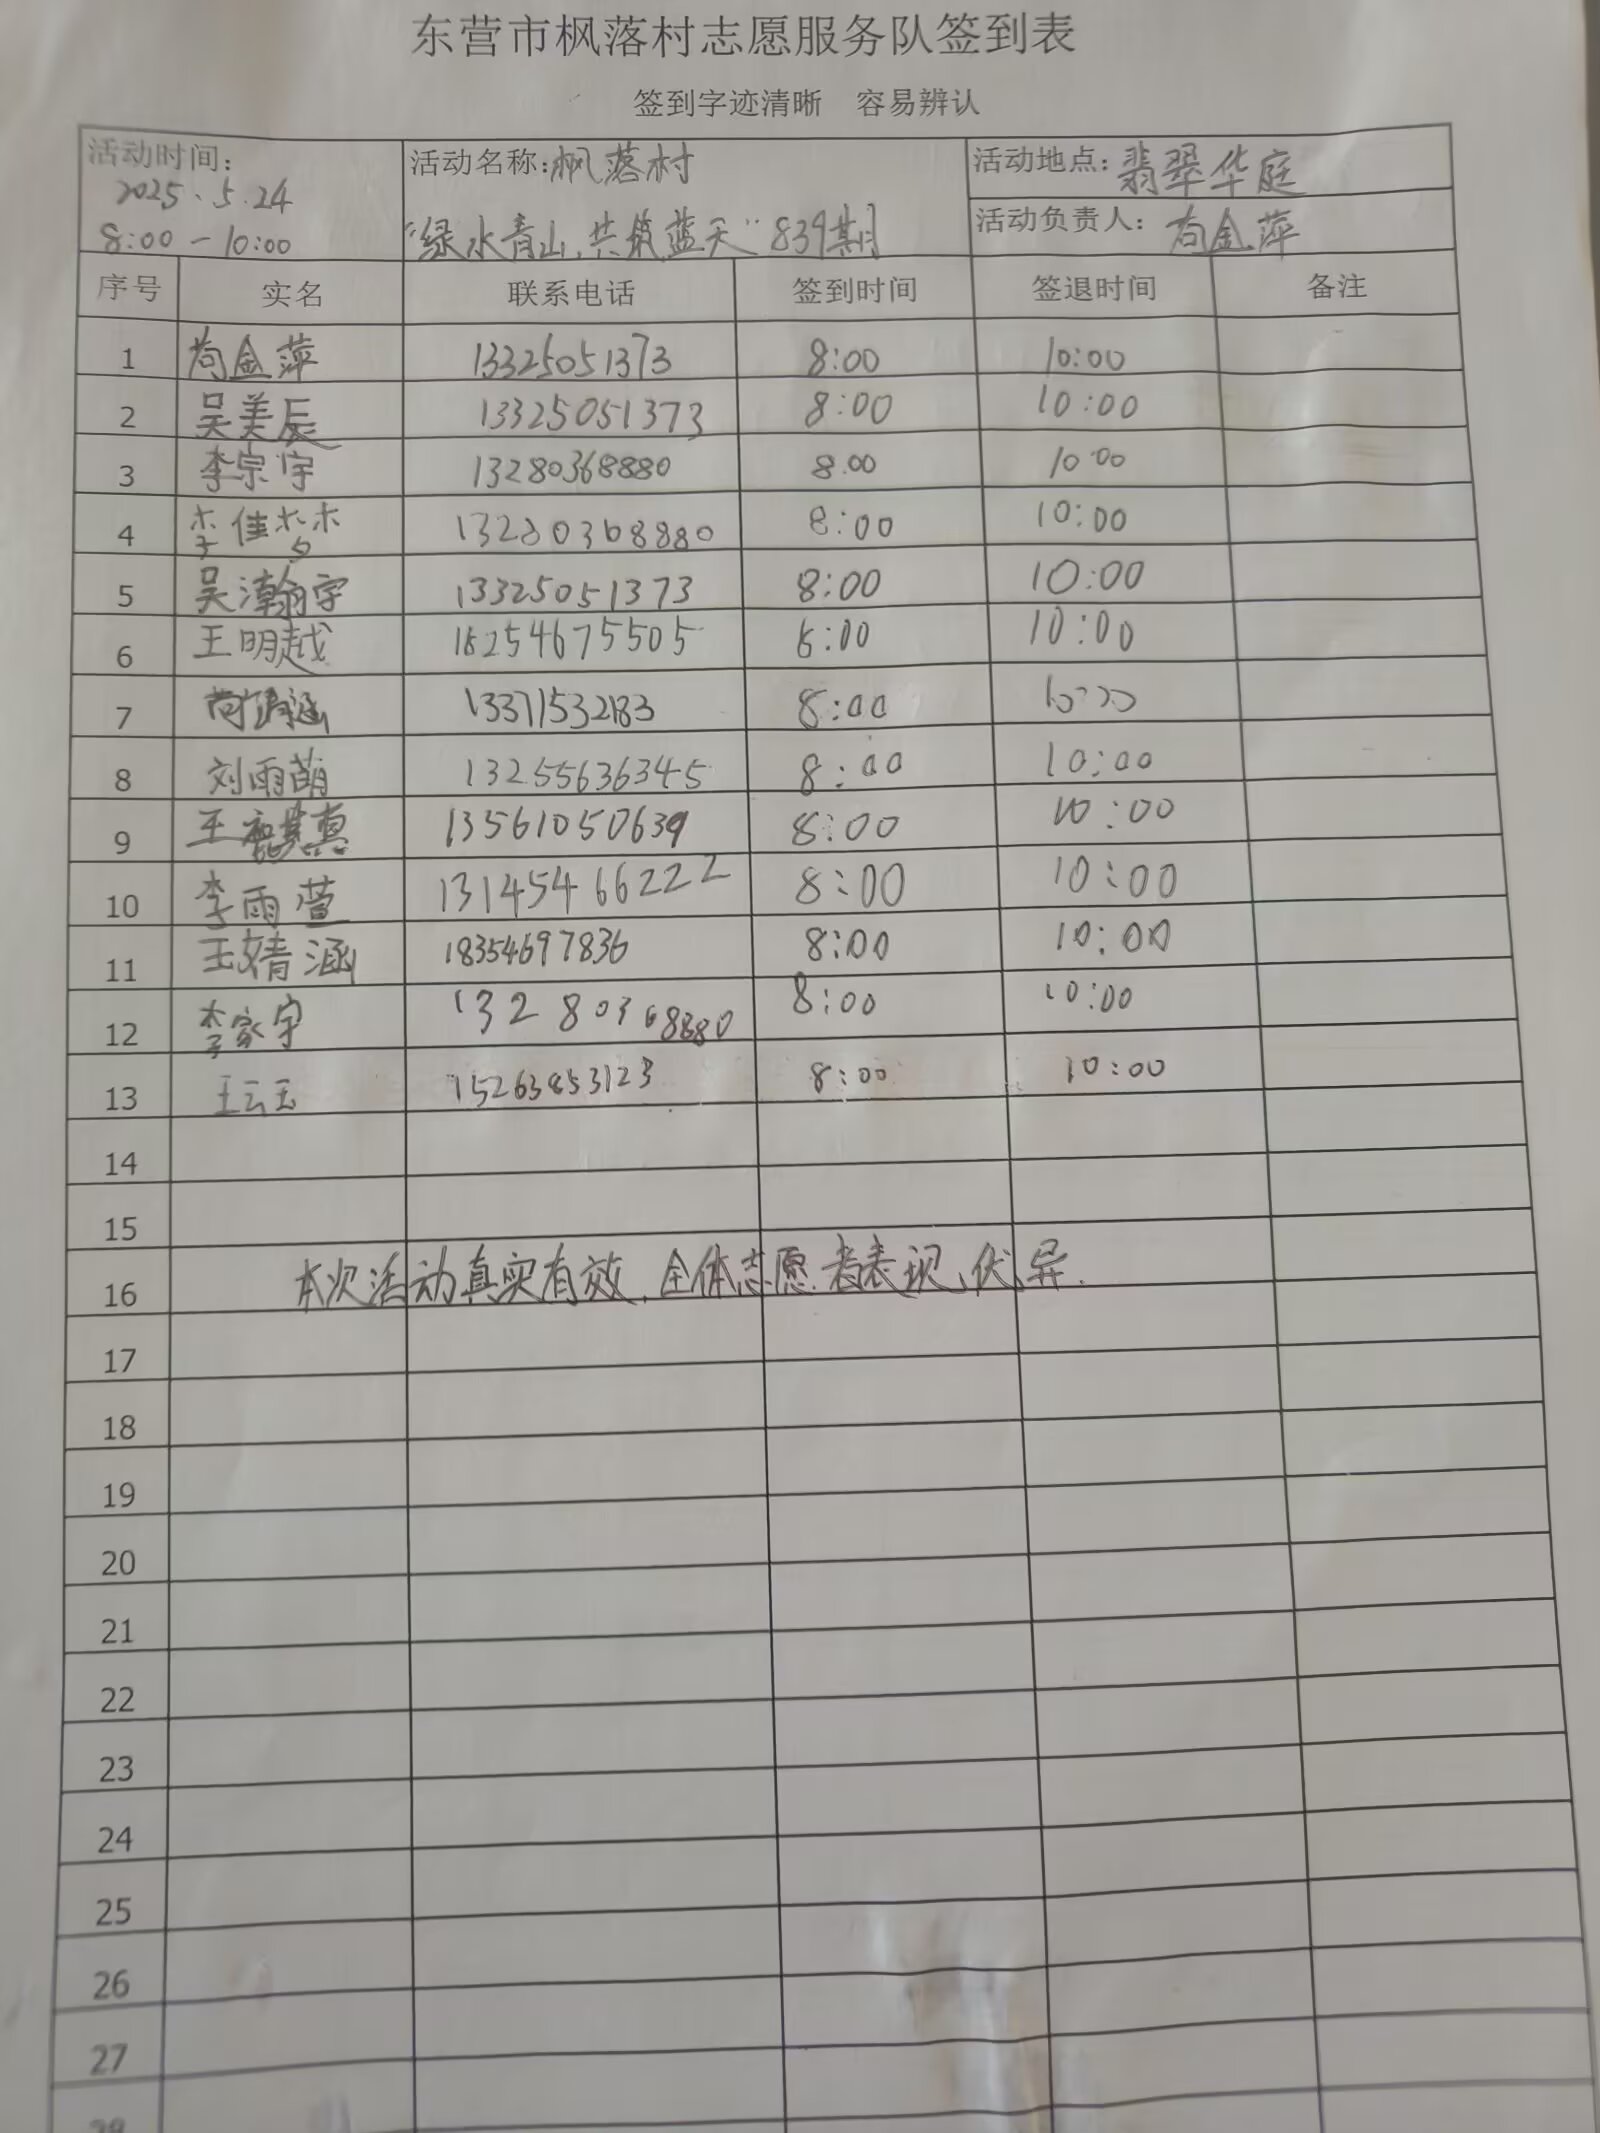 东营市枫落村志愿服务队签到表
签到字迹清晰 容易辨认
活动时间: 2025.5.24 8:00-10:00
活动名称:枫落村 "绿水青山,共筑蓝天"839期
活动地点:翡翠华庭
活动负责人:苟金萍
序号 实名 联系电话 签到时间 签退时间 备注
1 苟金萍 13325051373 8:00 10:00
2 吴美辰 13325051373 8:00 10:00
3 李宗宇 13280368880 8:00 10:00
4 李佳梦 13280368880 8:00 10:00
5 吴瀚宇 13325051373 8:00 10:00
6 王明越 18254675505 8:00 10:00
7 13371532183 8:00 10:00
8 刘雨萌 13255636345 8:00 10:00
9 王 真 13561050639 8:00 10:00
10 李雨萱 13145466222 8:00 10:00
11 王婧涵 18354697836 8:00 10:00
12 李家宇 13280368880 8:00 10:00
13 王云玉 15263853123 8:00 10:00
14
15
16 本次活动真实有效,全体志愿者表现优异.
17
18
19
20
21
22
23
24
25
26
27
28